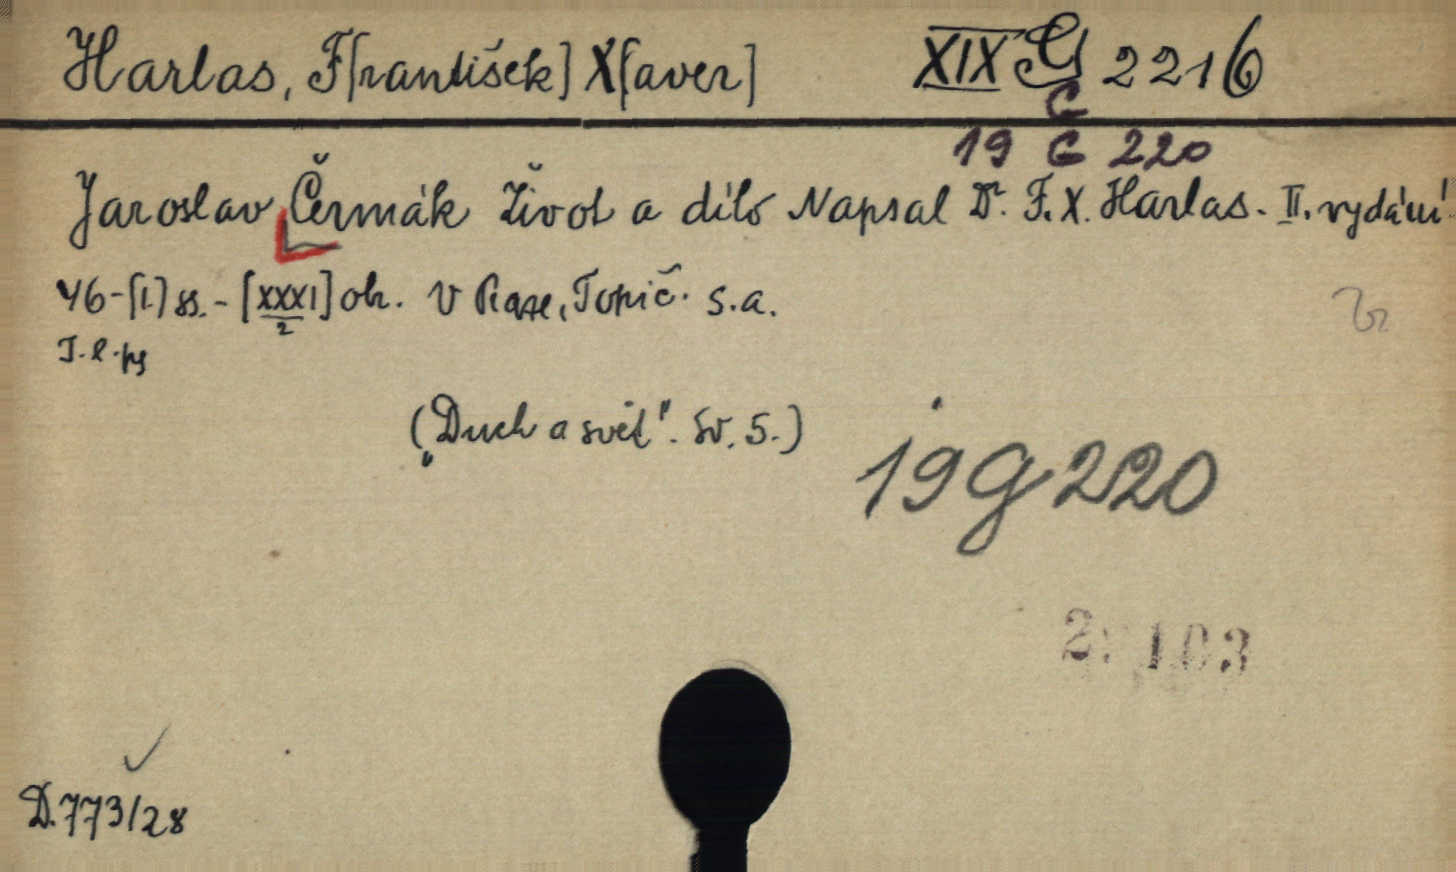 Harlas, F[rantišek] X[aver] XIX G 2216
G
19 G 220
Jaroslav Čermák Život a dílo Napsal Dr. F. X. Harlas. II. vydání
46-[I.] ss. - [XXXI] ob. V Praze, Topič. s.a.
2
(„Duch a svět". Sv. 5.)
19 G 220
103
D. 773/28